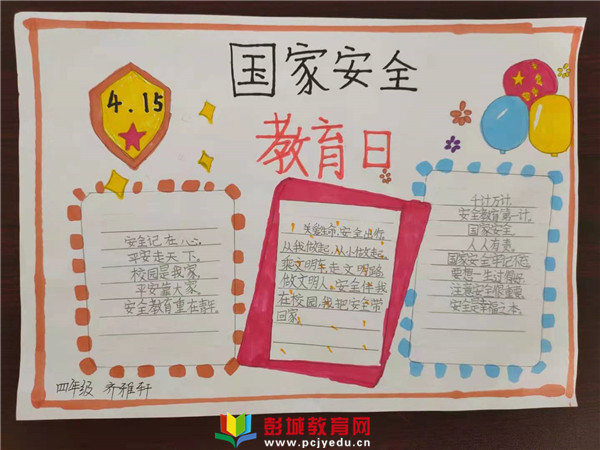 国家安全
教育日
4.15
安全记在心。
平安走天下。
校园是我家,
平安靠大家,
安全教育重在青年。
关爱生命,安全出行
从我做起,从小做起。
乘文明车走文明路
做文明人,安全伴我
在校园,我把安全带
回家。
千计万计,
安全教育第一计。
国家安全,
人人有责。
国家安全牢记
要想一生过得好
注意安全很重要
安全是幸福之本。
四年级 齐雅轩
彭城教育网
www.pcjyedu.cn